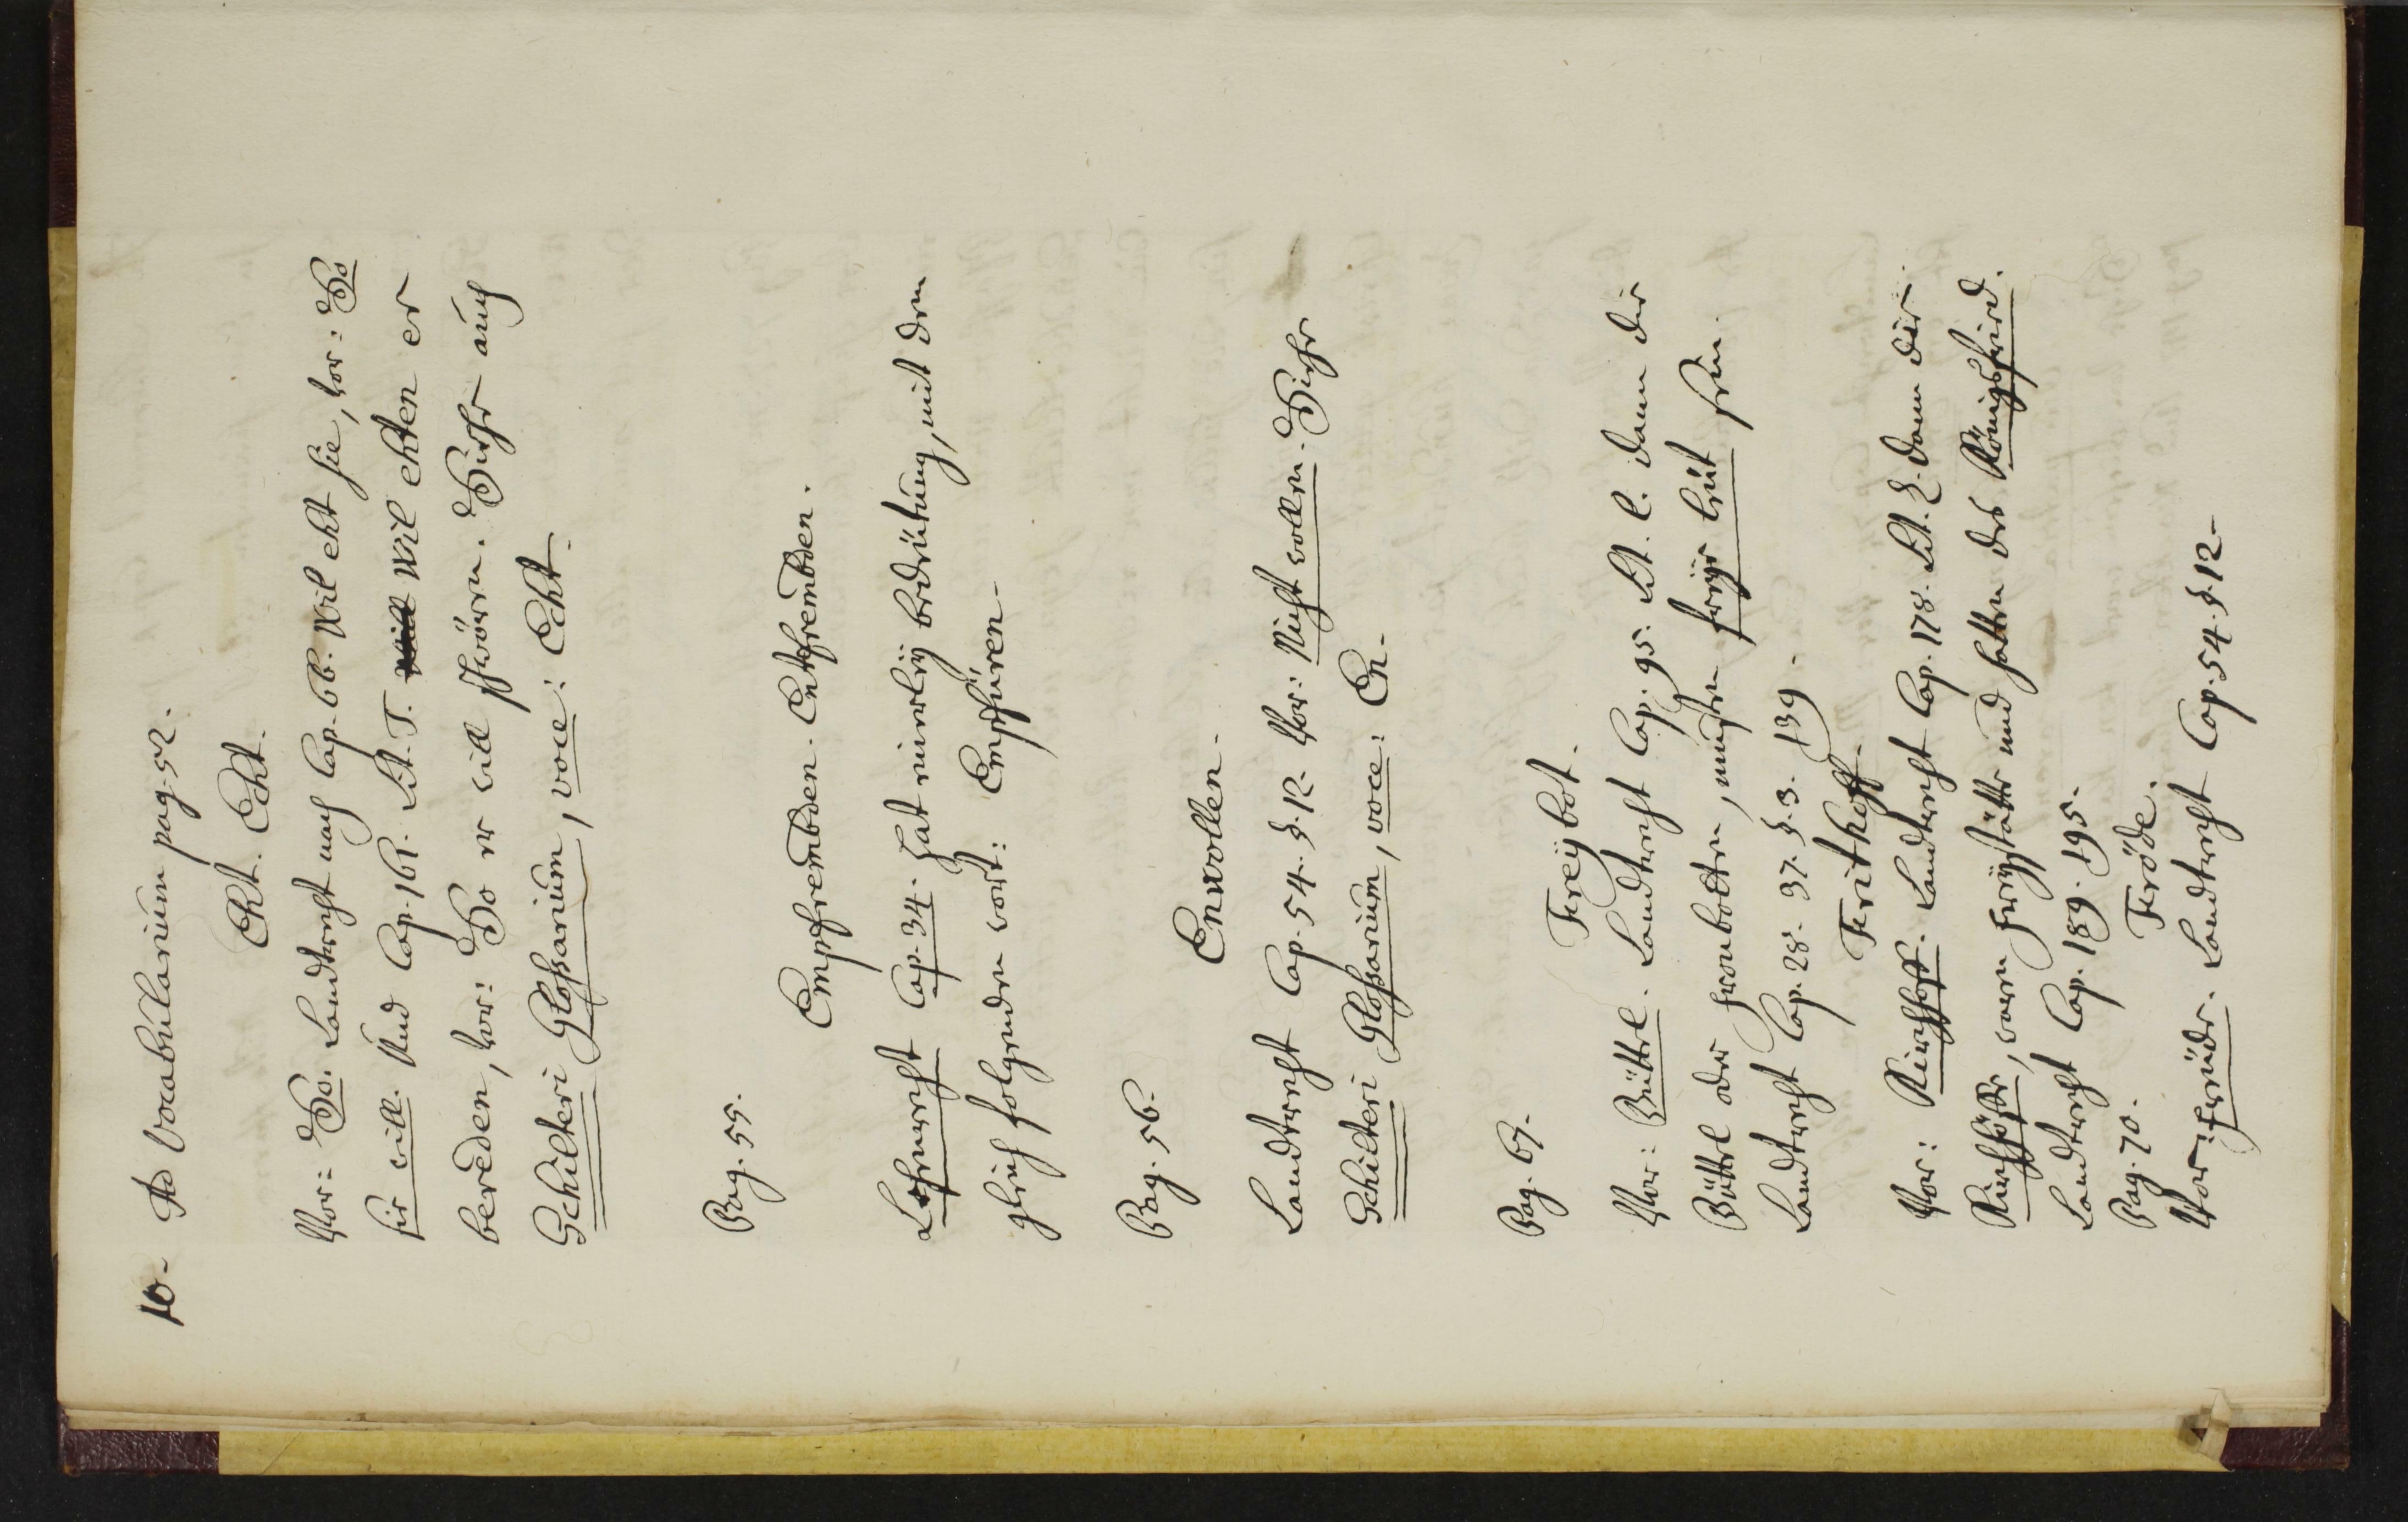 10. Ad Vocabularium pag. 52.
Eht. Echt.
Vor: So. Landtrecht nach Cap. 66. Wil eht sie, vor: So
sie will. Und Cap. 161. Lit. T. Wil ehten er
bereden, vor: So er will schwören. Siehe auch
Schilteri Gloßarium, voce: Echt.
Pag. 55.
Empfrembden. Entfrembden.
Lehenrecht Cap. 34. hat einerley bedeutung, mit dem
gleich folgenden wort: Empfüren.
Pag. 56.
Enwollen.
Landtrecht Cap. 54. §. 12. Vor: Nicht wollen. Siehe
Schilteri Gloßarium, voce: En.
Pag. 67.
Freybot.
Vor: Büttel. Landtrecht Cap. 95. Lit. l. dann die
Büttel oder fronbotten, musten freye leüt sein.
Landtrecht Cap. 28. 37. §. 3. 139.
Frithoff.
Vor: Kirchhoff. Landtrecht Cap. 178. Lit. L. dann die
Kirchhöffe, waren freystätte und hatten des Königsfrid.
Landtrecht Cap. 189. 195.
Pag. 70.
Fröde.
Vor: freüde. Landtrecht Cap. 54. §. 12.